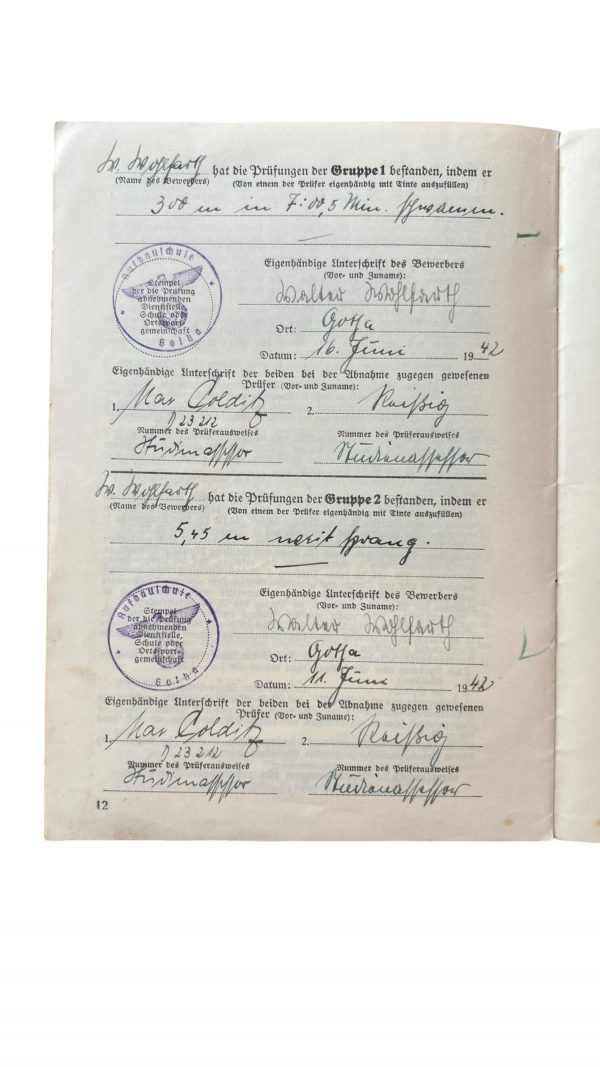 W. Wohlfarth hat die Prüfungen der Gruppe 1 bestanden, indem er
(Name des Bewerbers) (Von einem der Prüfer eigenhändig mit Tinte auszufüllen)
300 m in 7:00,5 Min. schwamm.
Aufbauschule
Stempel
der die Prüfung
abnehmenden
Dienststelle,
Schule oder
Ortssport-
gemeinschaft
Gotha
Eigenhändige Unterschrift des Bewerbers
(Vor- und Zuname):
Walter Wohlfarth
Ort: Gotha
Datum: 16. Juni 1942
Eigenhändige Unterschrift der beiden bei der Abnahme zugegen gewesenen
Prüfer (Vor- und Zuname):
1. Max Colditz 2. Reißig
23212
Nummer des Prüferausweises Nummer des Prüferausweises
Studienassessor Studienassessor
W. Wohlfarth hat die Prüfungen der Gruppe 2 bestanden, indem er
(Name des Bewerbers) (Von einem der Prüfer eigenhändig mit Tinte auszufüllen)
5,45 m weit sprang.
Aufbauschule
Stempel
der die Prüfung
abnehmenden
Dienststelle,
Schule oder
Ortssport-
gemeinschaft
Gotha
Eigenhändige Unterschrift des Bewerbers
(Vor- und Zuname):
Walter Wohlfarth
Ort: Gotha
Datum: 11. Juni 1942
Eigenhändige Unterschrift der beiden bei der Abnahme zugegen gewesenen
Prüfer (Vor- und Zuname):
1. Max Colditz 2. Reißig
23212
Nummer des Prüferausweises Nummer des Prüferausweises
Studienassessor Studienassessor
12